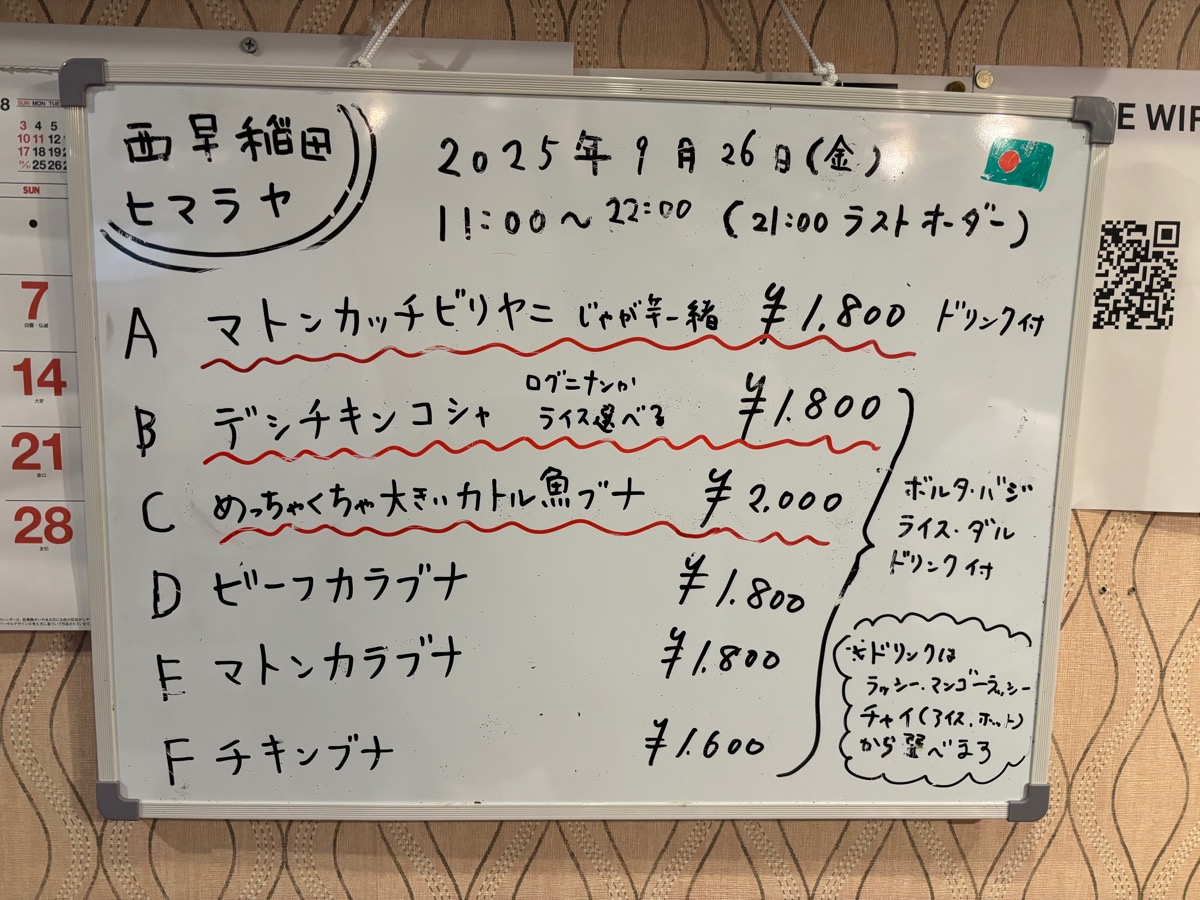 西早稲田
ヒマラヤ
2025年9月26日(金)
11:00～22:00 (21:00 ラストオーダー)
A マトンカッチビリヤニ じゃが芋一緒 ¥1.800 ドリンク付
B デシチキンコシャ ログニナンか ライス選べる ¥1.800
C めっちゃくちゃ大きいカトル魚ブナ ¥2.000
D ビーフカラブナ ¥1.800
E マトンカラブナ ¥1.800
F チキンブナ ¥1.600
ボルタ・バジ
ライス・ダル
ドリンク付
※ドリンクは
ラッシー・マンゴーラッシー
チャイ(アイス・ホット)
から選べまろ
8 SUN MON TUE
3 4 5
10 11 12
17 18 19
25 26
SUN
7
14
21
28
E WIF